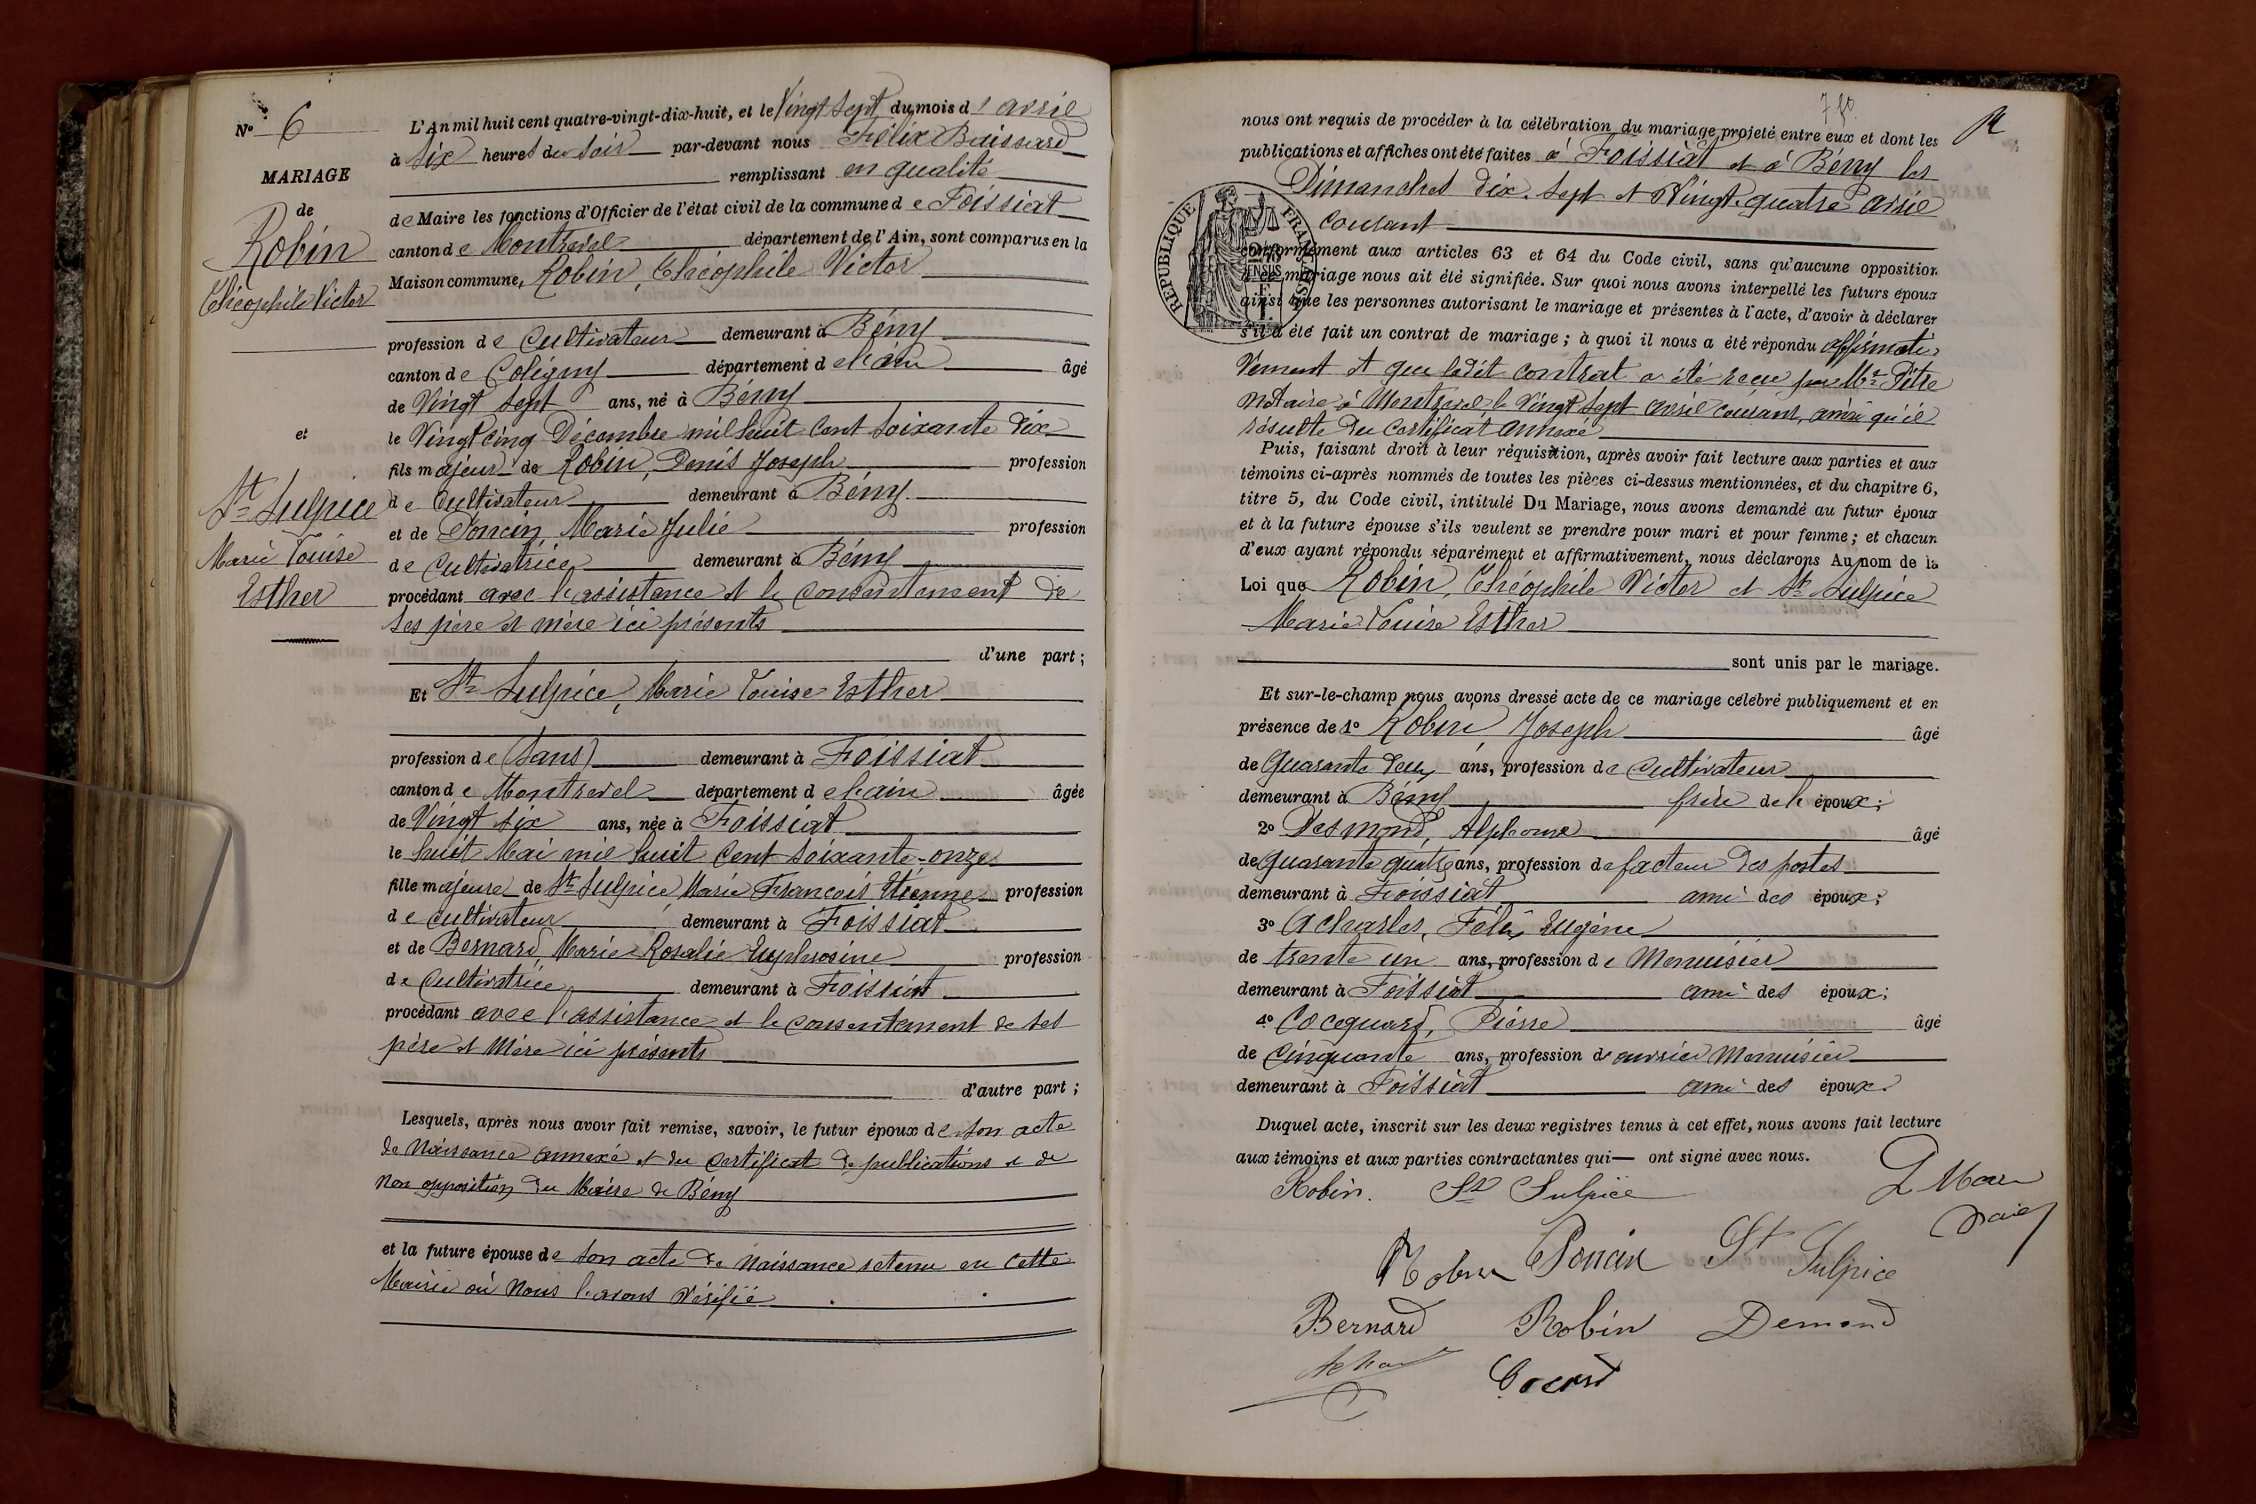 N° 6
MARIAGE
de
Robin
Théophile Victor
et
St Sulpice
Marie Louise
Esther
L'An mil huit cent quatre-vingt-dix-huit, et le Vingt sept du mois d'avril
à six heures du soir par-devant nous Félix Buissard
remplissant en qualité
de Maire les fonctions d'Officier de l'état civil de la commune de Foissiat
canton de Montrevel département de l'Ain, sont comparus en la
Maison commune, Robin, Théophile Victor
profession de Cultivateur demeurant à Bény
canton de Coligny département de l'ain âgé
de Vingt sept ans, né à Bény
le Vingt cinq Décembre mil huit cent soixante dix
fils majeur de Robin, Denis Joseph profession
de Cultivateur demeurant à Bény
et de Poncin Marie Julie profession
de Cultivatrice demeurant à Bény
procédant avec l'assistance et le consentement de
ses père et mère ici présents
d'une part ;
Et St Sulpice, Marie Louise Esther
profession de (sans) demeurant à Foissiat
canton de Montrevel département de l'ain âgée
de Vingt six ans, née à Foissiat
le huit Mai mil huit cent soixante-onze
fille majeure de St Sulpice, Marie François Etienne profession
de cultivateur demeurant à Foissiat
et de Bernard, Marie Rosalie Euphrosine profession
de Cultivatrice demeurant à Foissiat
procédant avec l'assistance et le consentement de ses
père et Mère ici présents
d'autre part ;
Lesquels, après nous avoir fait remise, savoir, le futur époux de son acte
de Naissance annexé et du certificat de publications et de
Non opposition du Maire de Bény
et la future épouse de son acte de Naissance retenu en cette
Mairie où Nous l'avons Vérifié
nous ont requis de procéder à la célébration du mariage projeté entre eux et dont les
publications et affiches ont été faites à Foissiat et à Bény les
Dimanches dix-sept et Vingt-quatre avril
courant
RÉPUBLIQUE FRANÇAISE
conformément aux articles 63 et 64 du Code civil, sans qu'aucune opposition
à ce mariage nous ait été signifiée. Sur quoi nous avons interpellé les futurs époux
ainsi que les personnes autorisant le mariage et présentes à l'acte, d'avoir à déclarer
s'il a été fait un contrat de mariage ; à quoi il nous a été répondu affirmati-
vement et que ledit contrat a été reçu par Me Pitre
notaire à Montrevel le Vingt sept avril courant, ainsi qu'il
résulte du certificat annexé
Puis, faisant droit à leur réquisition, après avoir fait lecture aux parties et aux
témoins ci-après nommés de toutes les pièces ci-dessus mentionnées, et du chapitre 6,
titre 5, du Code civil, intitulé Du Mariage, nous avons demandé au futur époux
et à la future épouse s'ils veulent se prendre pour mari et pour femme ; et chacun
d'eux ayant répondu séparément et affirmativement, nous déclarons Au nom de la
Loi que Robin, Théophile Victor et St Sulpice
Marie Louise Esther
sont unis par le mariage.
Et sur-le-champ nous avons dressé acte de ce mariage célébré publiquement et en
présence de 1° Robin, Joseph âgé
de Quarante deux ans, profession de Cultivateur
demeurant à Bény frère de l' époux ;
2° Desmond, Alphonse âgé
de quarante quatre ans, profession de facteur des postes
demeurant à Foissiat ami des époux ;
3° Acharles, Félix Eugène
de trente un ans, profession de Menuisier
demeurant à Foissiat ami des époux ;
4° Cocquard, Pierre âgé
de Cinquante ans, profession d'ouvrier Menuisier
demeurant à Foissiat ami des époux.
Duquel acte, inscrit sur les deux registres tenus à cet effet, nous avons fait lecture
aux témoins et aux parties contractantes qui ont signé avec nous.
Robin. St Sulpice
Robin Poncin St Sulpice
Bernard Robin Demond
Cocard